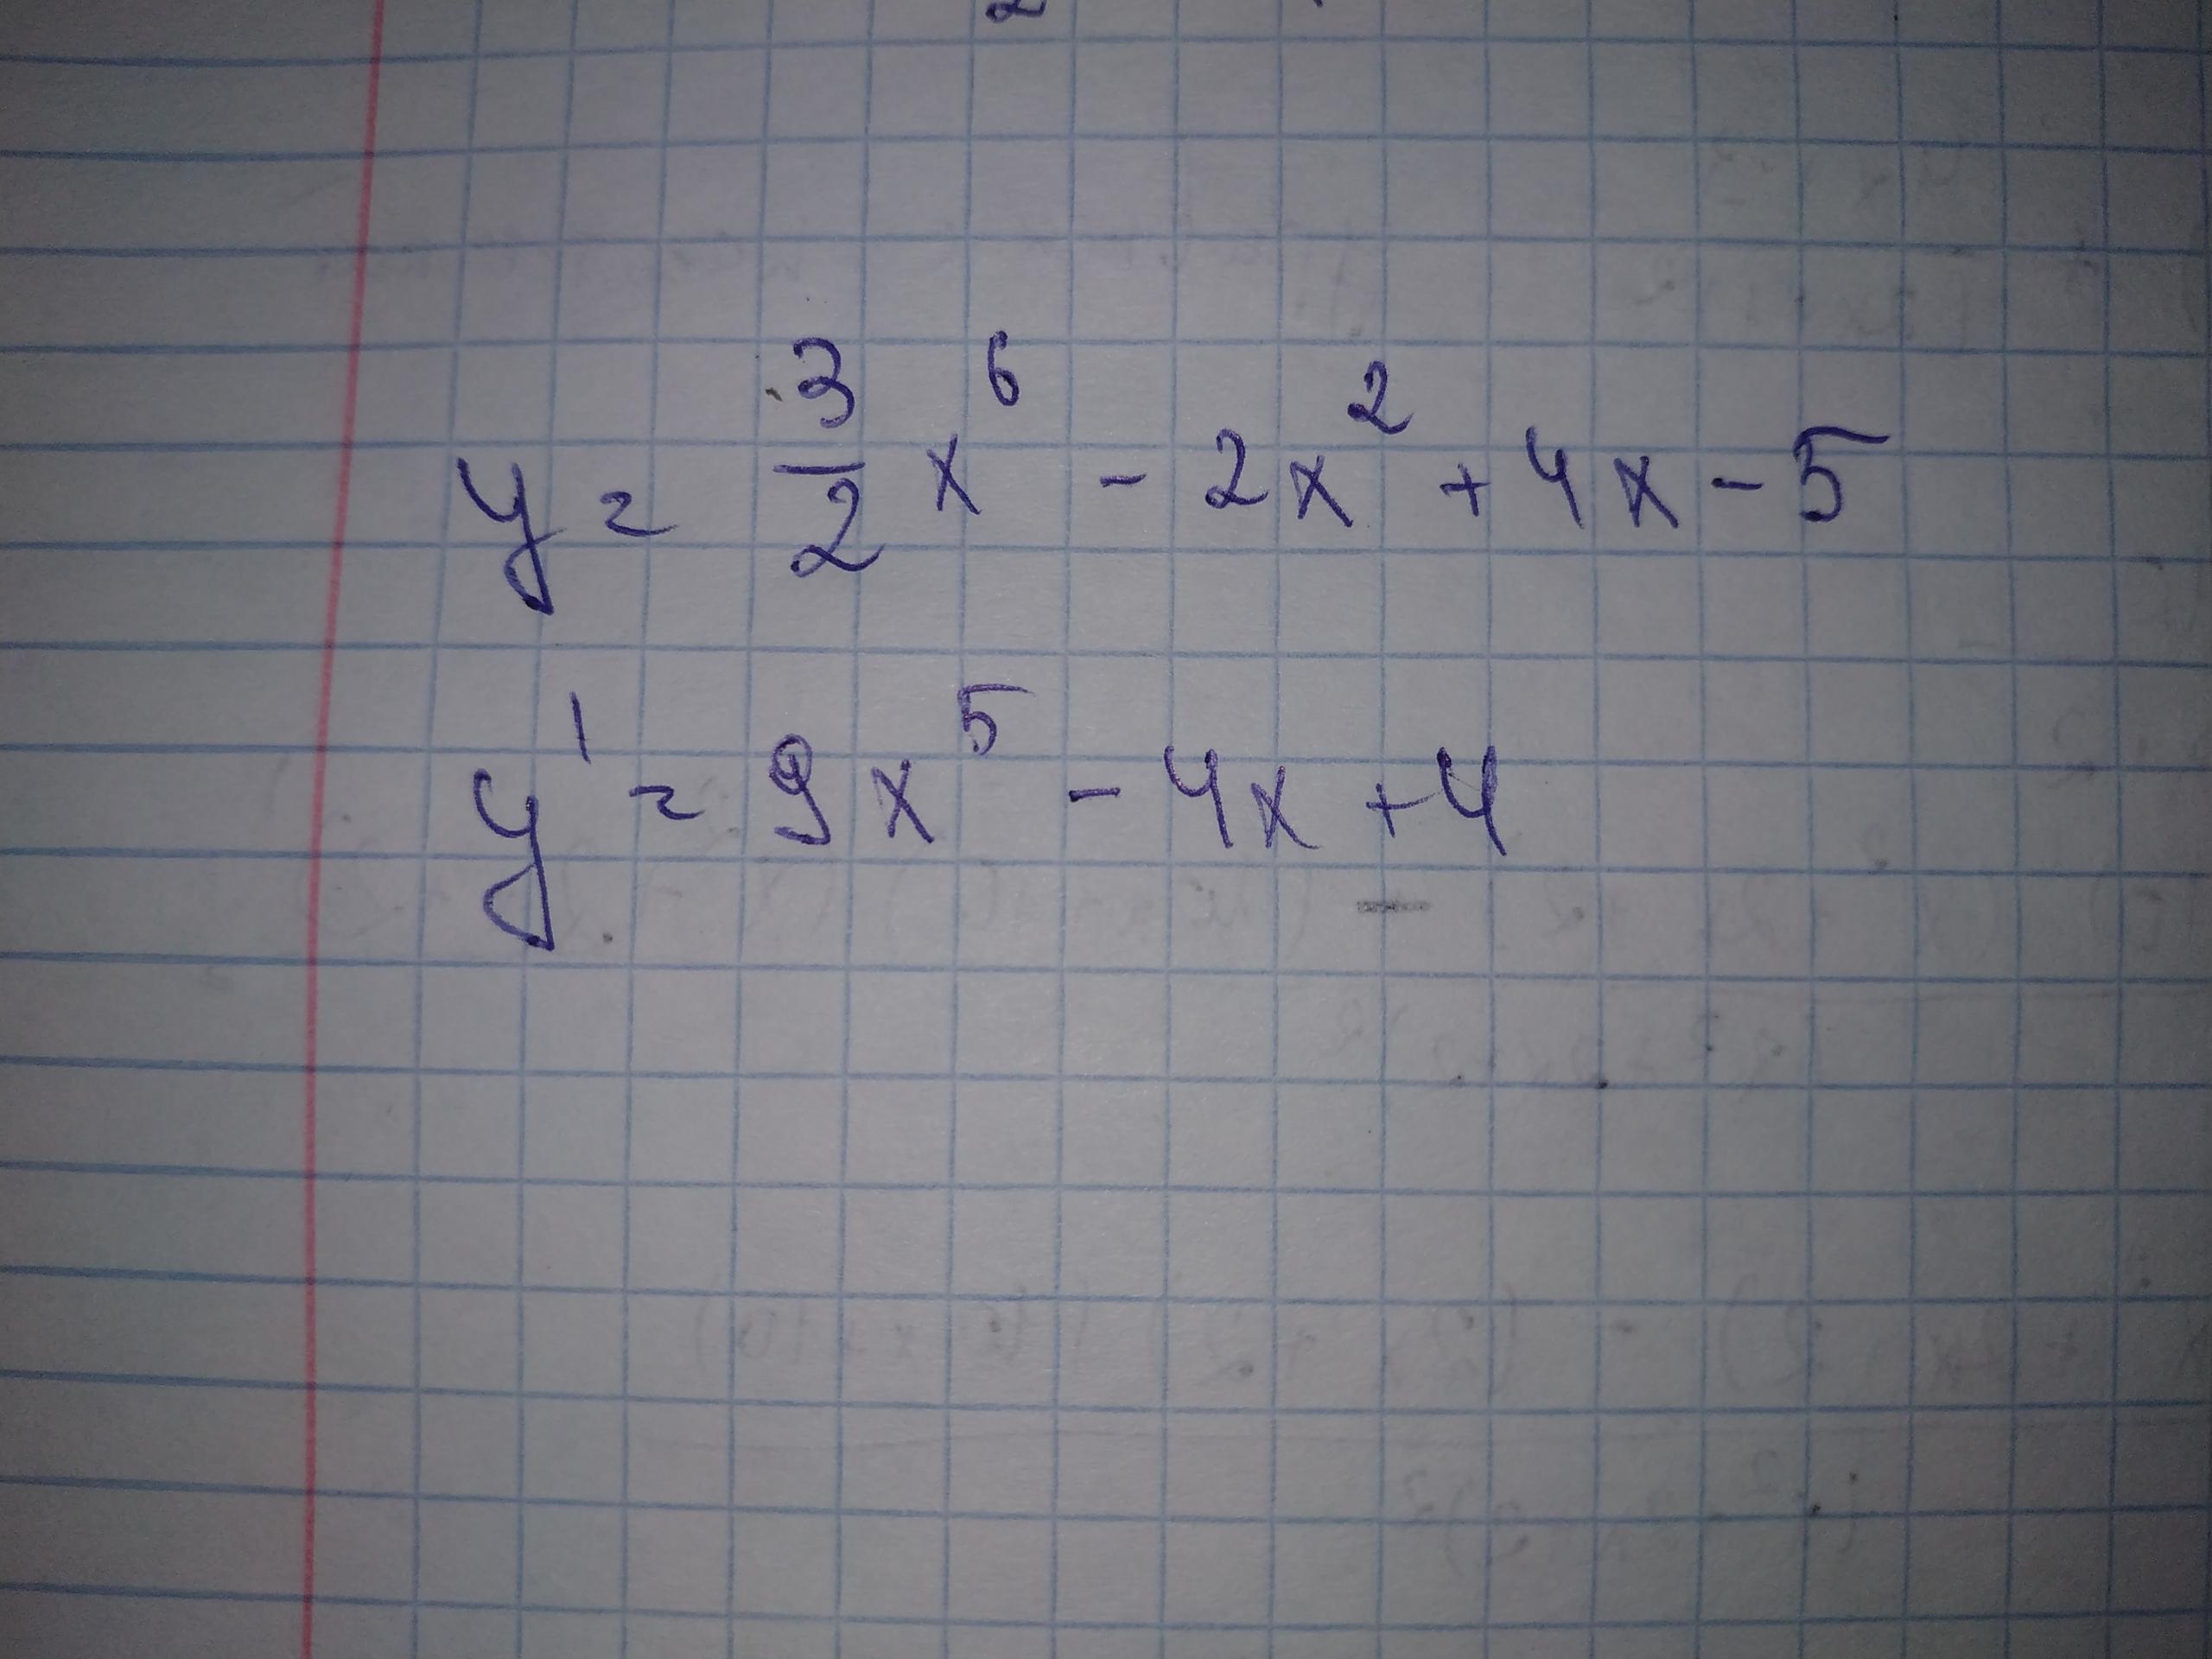 y = 3/2 x⁶ - 2x² + 4x - 5
y' = 9x⁵ - 4x + 4